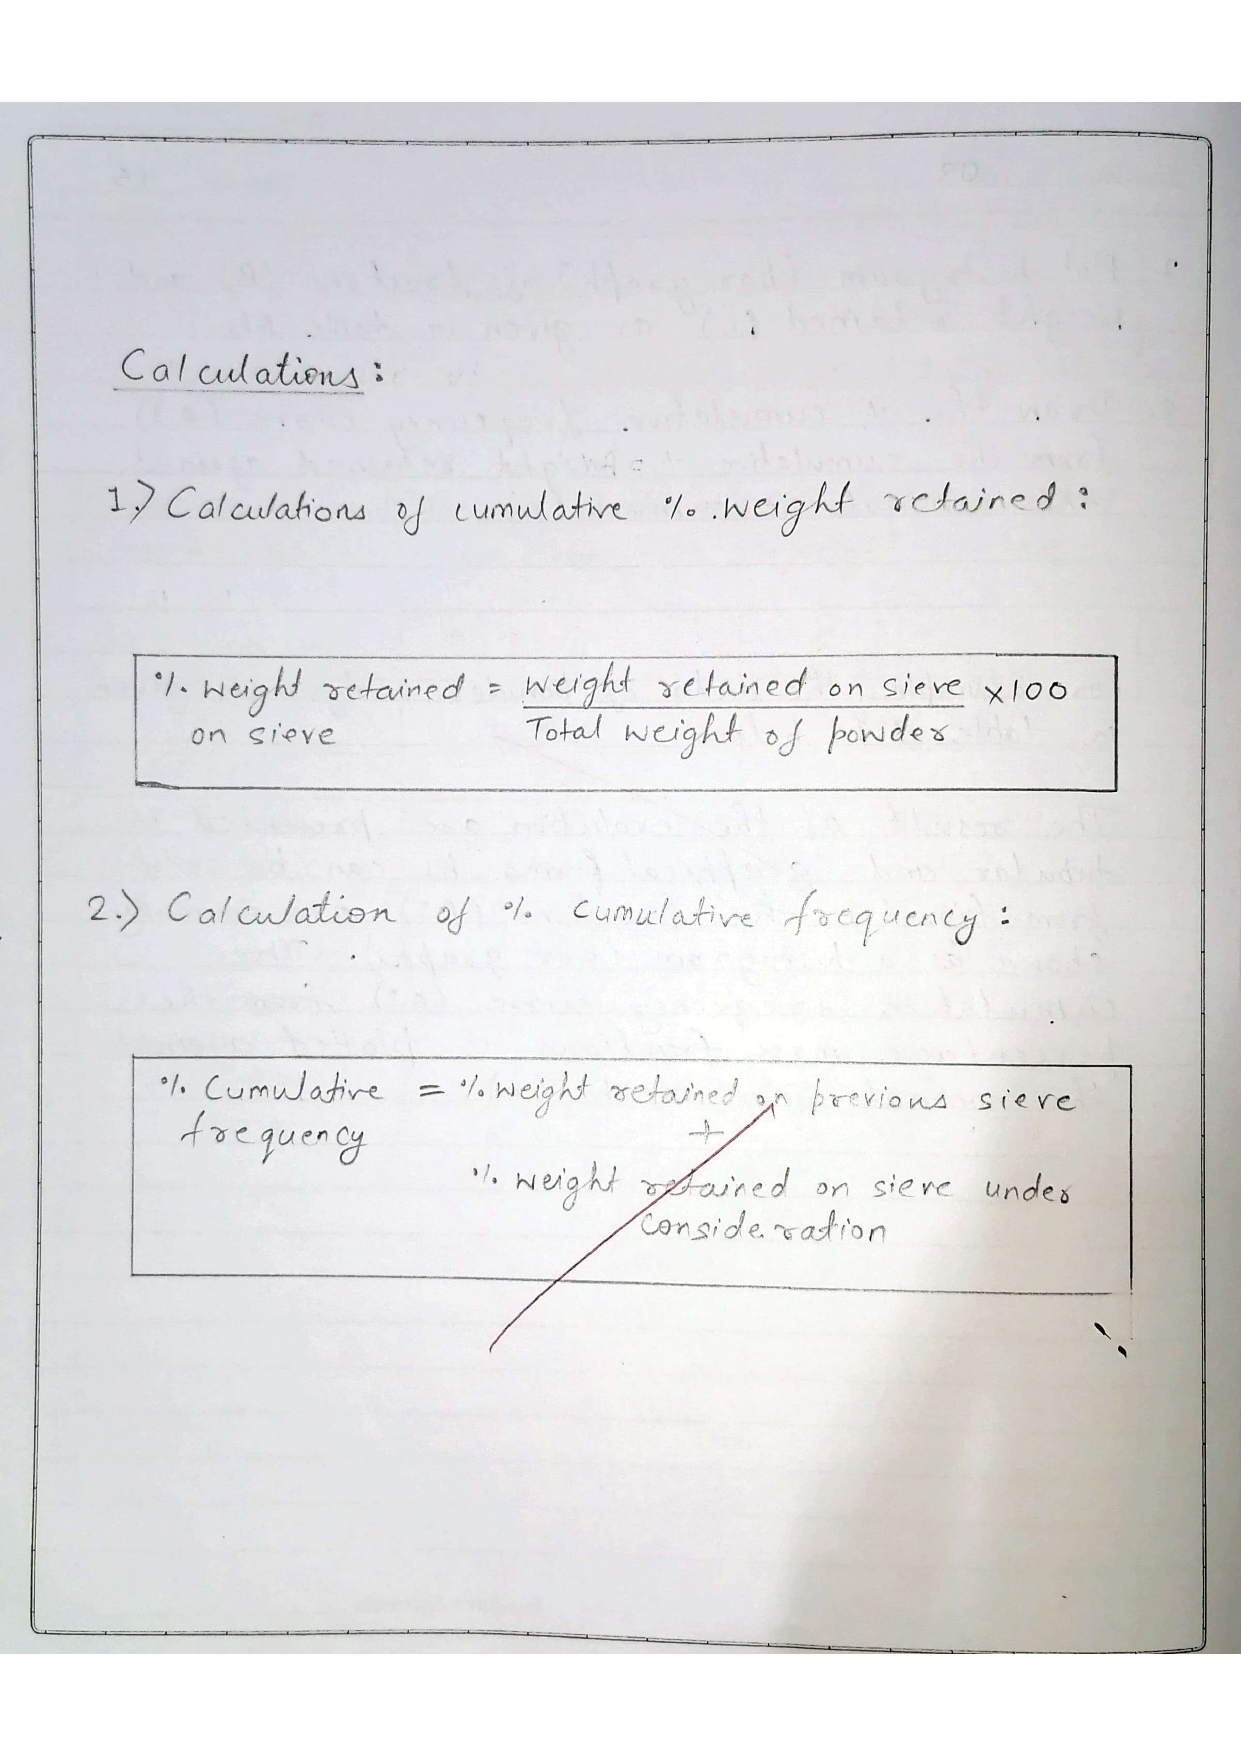 Calculations :
1.) Calculations of cumulative %. weight retained :
%. weight retained = weight retained on sieve ×100
on sieve Total weight of powder
2.) Calculation of %. cumulative frequency :
%. Cumulative = %. weight retained on previous sieve
frequency +
%. weight retained on sieve under
consideration